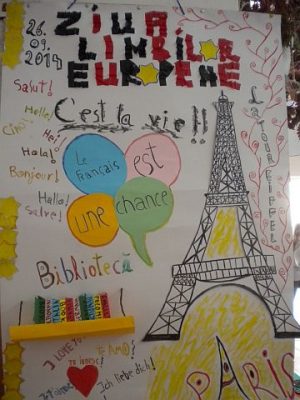 26.
09.
2014
ZIUA
LIMBILOR
EUROPENE
Salut!
C'est la vie!!
Hello!
Ciao!
Hei!
Hola!
Bonjour!
Hallo!
Salve!
Le
français
est
une
chance
LA TOUR EIFFEL
Bibliotecă
I LOVE YOU
TE IUBESC!
TE AMO!
Ich liebe dich!
PARIS